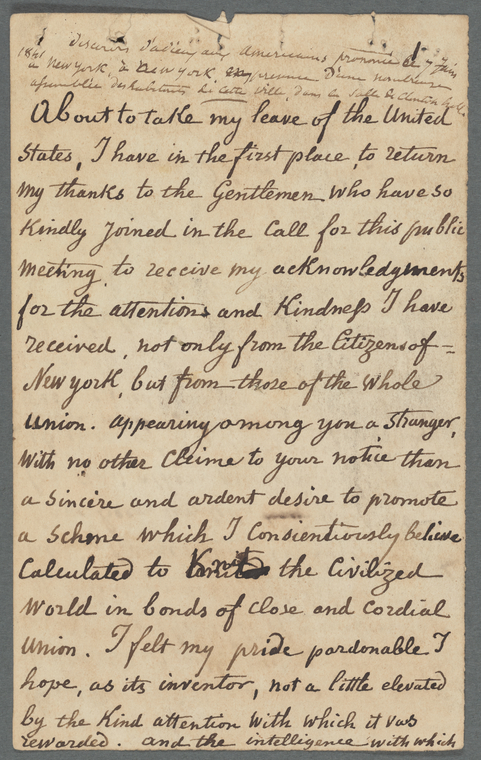 Discours d'adieu aux Americains prononcé le 7 Juin
1841 a New york, en presence d'une nombreuse
assemblée des habitants de cette ville, dans la Salle de Clinton hall.
About to take my leave of the United
States, I have in the first place, to return
my thanks to the Gentlemen who have so
Kindly Joined in the Call for this public
meeting, to receive my acknowledgments
for the attentions and Kindneſs I have
received, not only from the Citizens of =
New york, but from those of the whole
Union. appearing among you a Stranger,
with no other Claime to your notice than
a Sincere and ardent desire to promote
a Scheme which I Consientiously believe
Calculated to Knit the Civilized
World in bonds of close and Cordial
Union. I felt my pride pardonable I
hope, as its inventor, not a little elevated
by the Kind attention with which it was
rewarded. and the intelligence with which